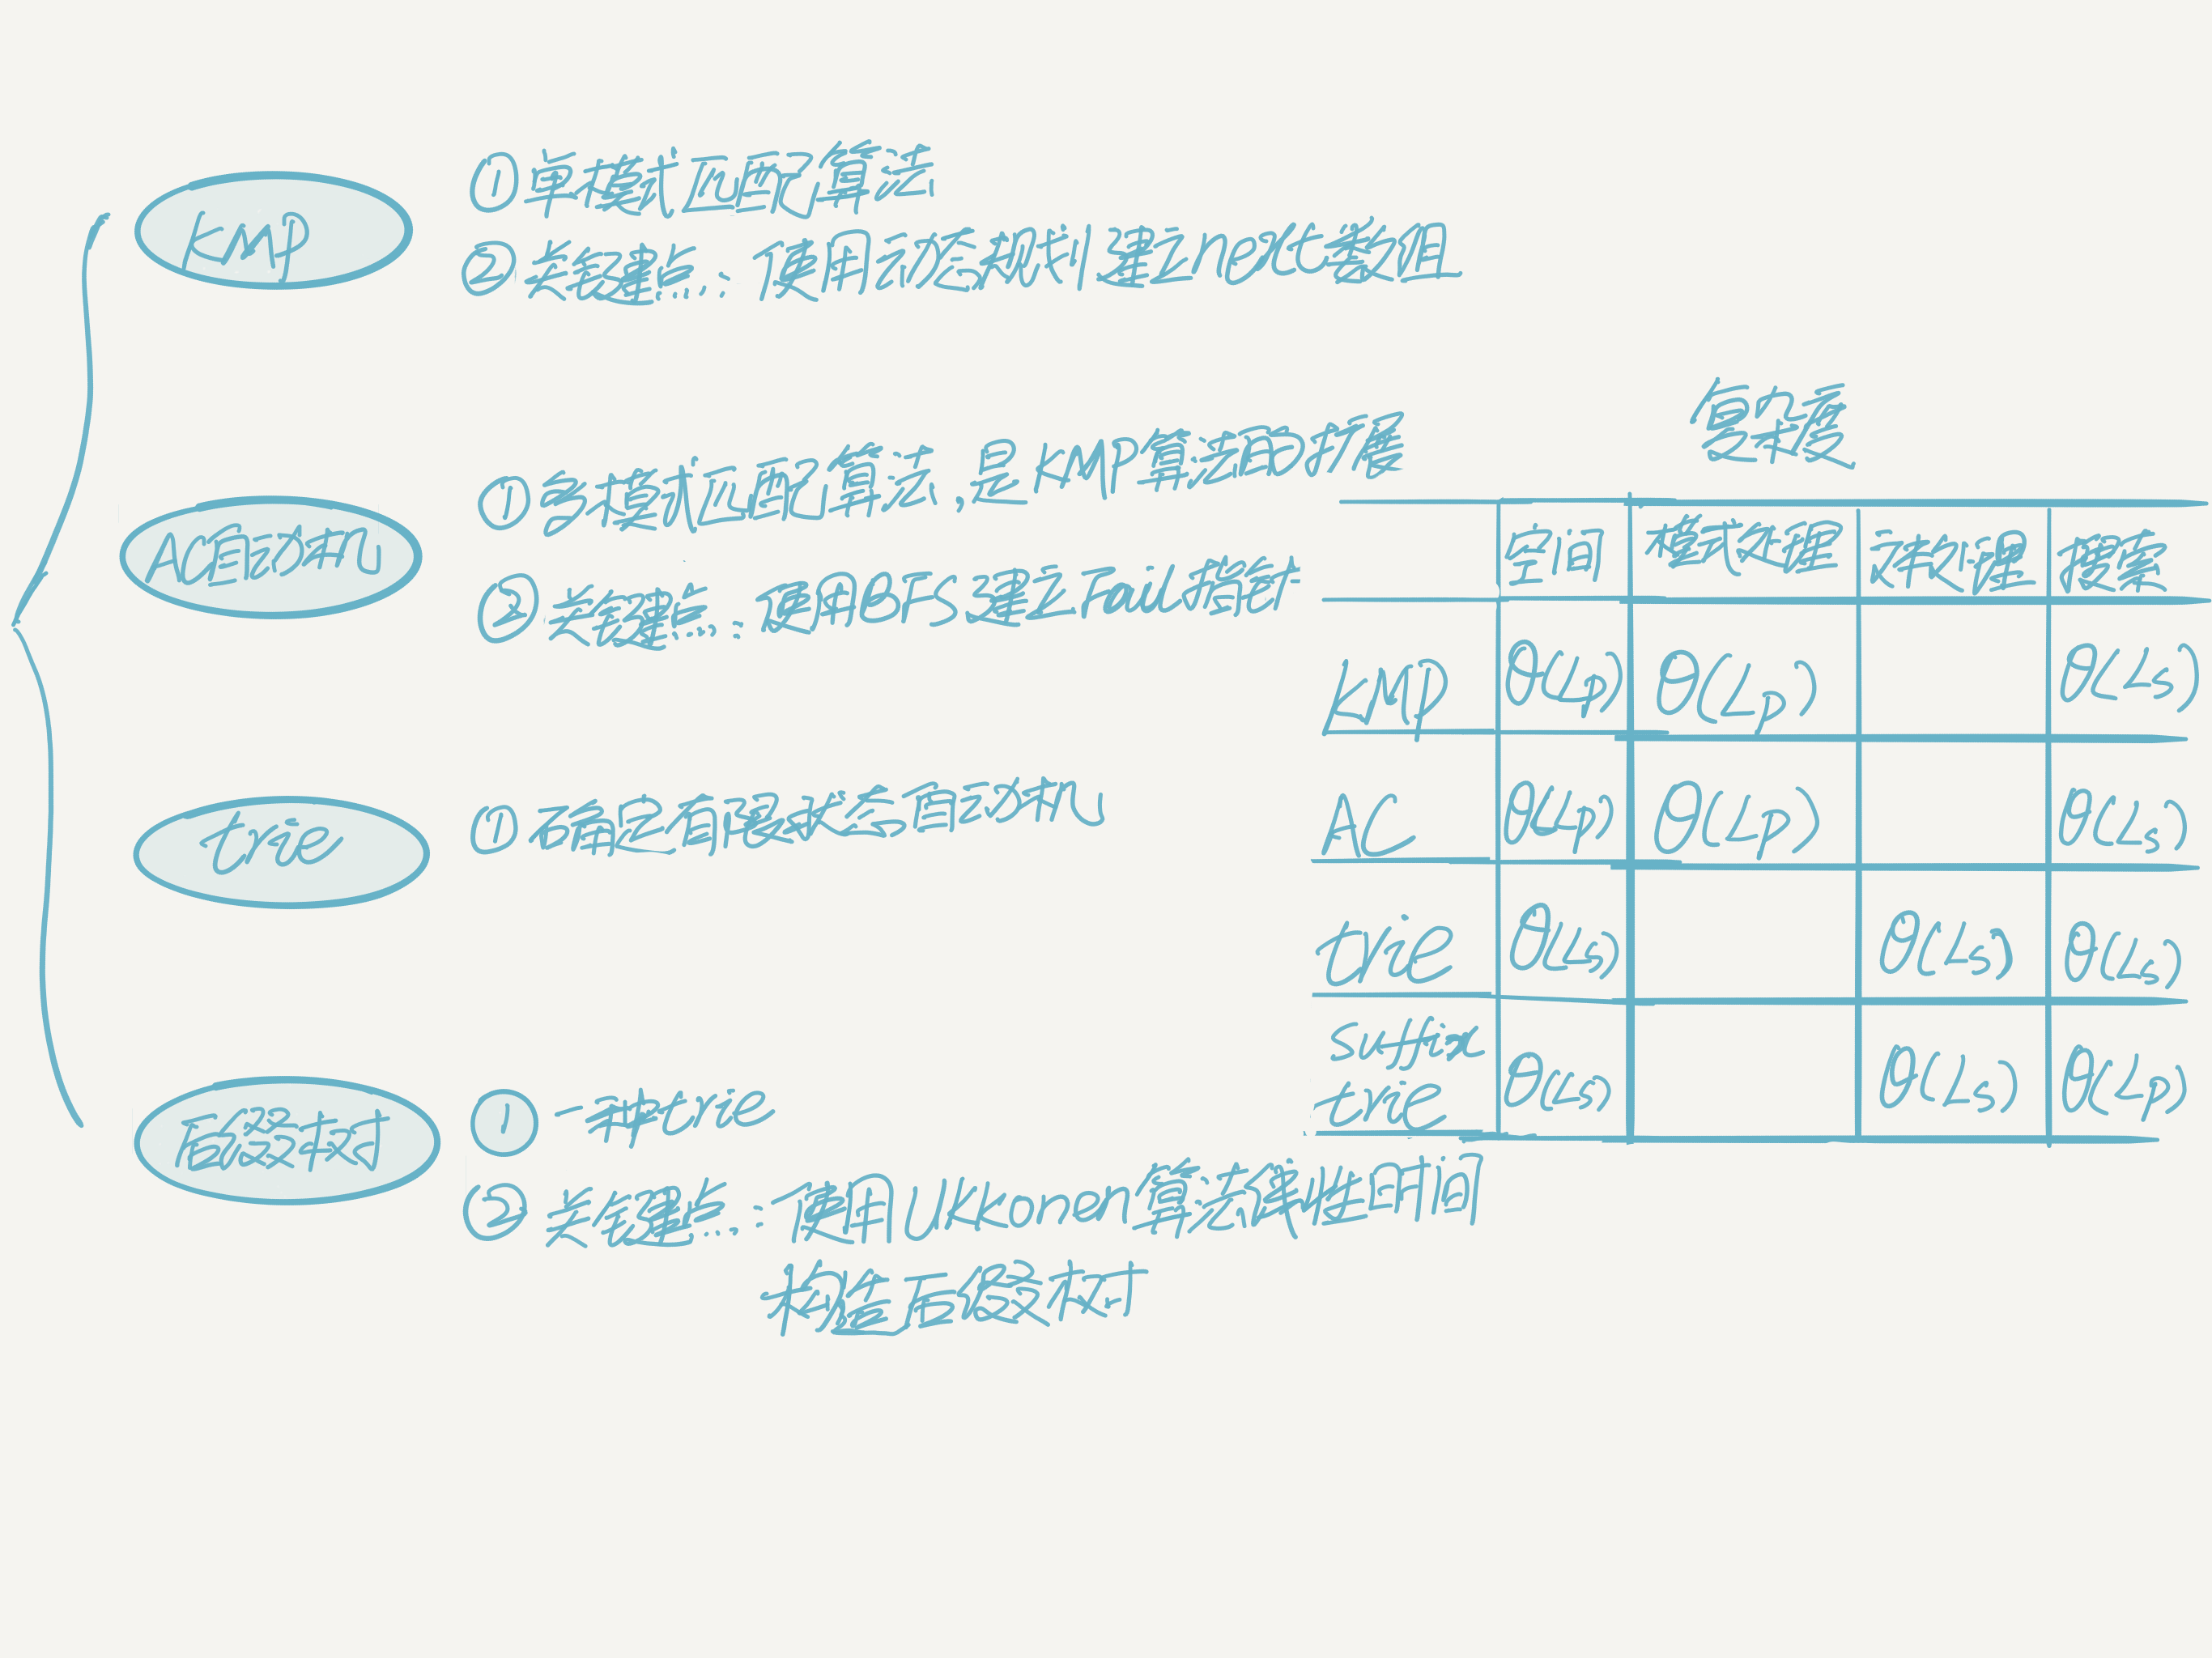 KMP
①单模式匹配算法
②关键点:使用次线性时间建立next数组
AC自动机
①多模式匹配算法,是KMP算法的拓展
②关键点:使用BFS建立fail指针
trie
①不含返回边的状态有限自动机
后缀树
①一种trie
②关键点:使用Ukkonen算法线性时间
构造后缀树
复杂度
空间 模式预处理 文本处理 搜索
KMP O(Lp) O(Lp) O(Ls)
AC O(Lp) O(Lp) O(Ls)
trie O(Ls) O(Ls) O(Ls)
suffix
trie O(Ls) O(Ls) O(Lp)